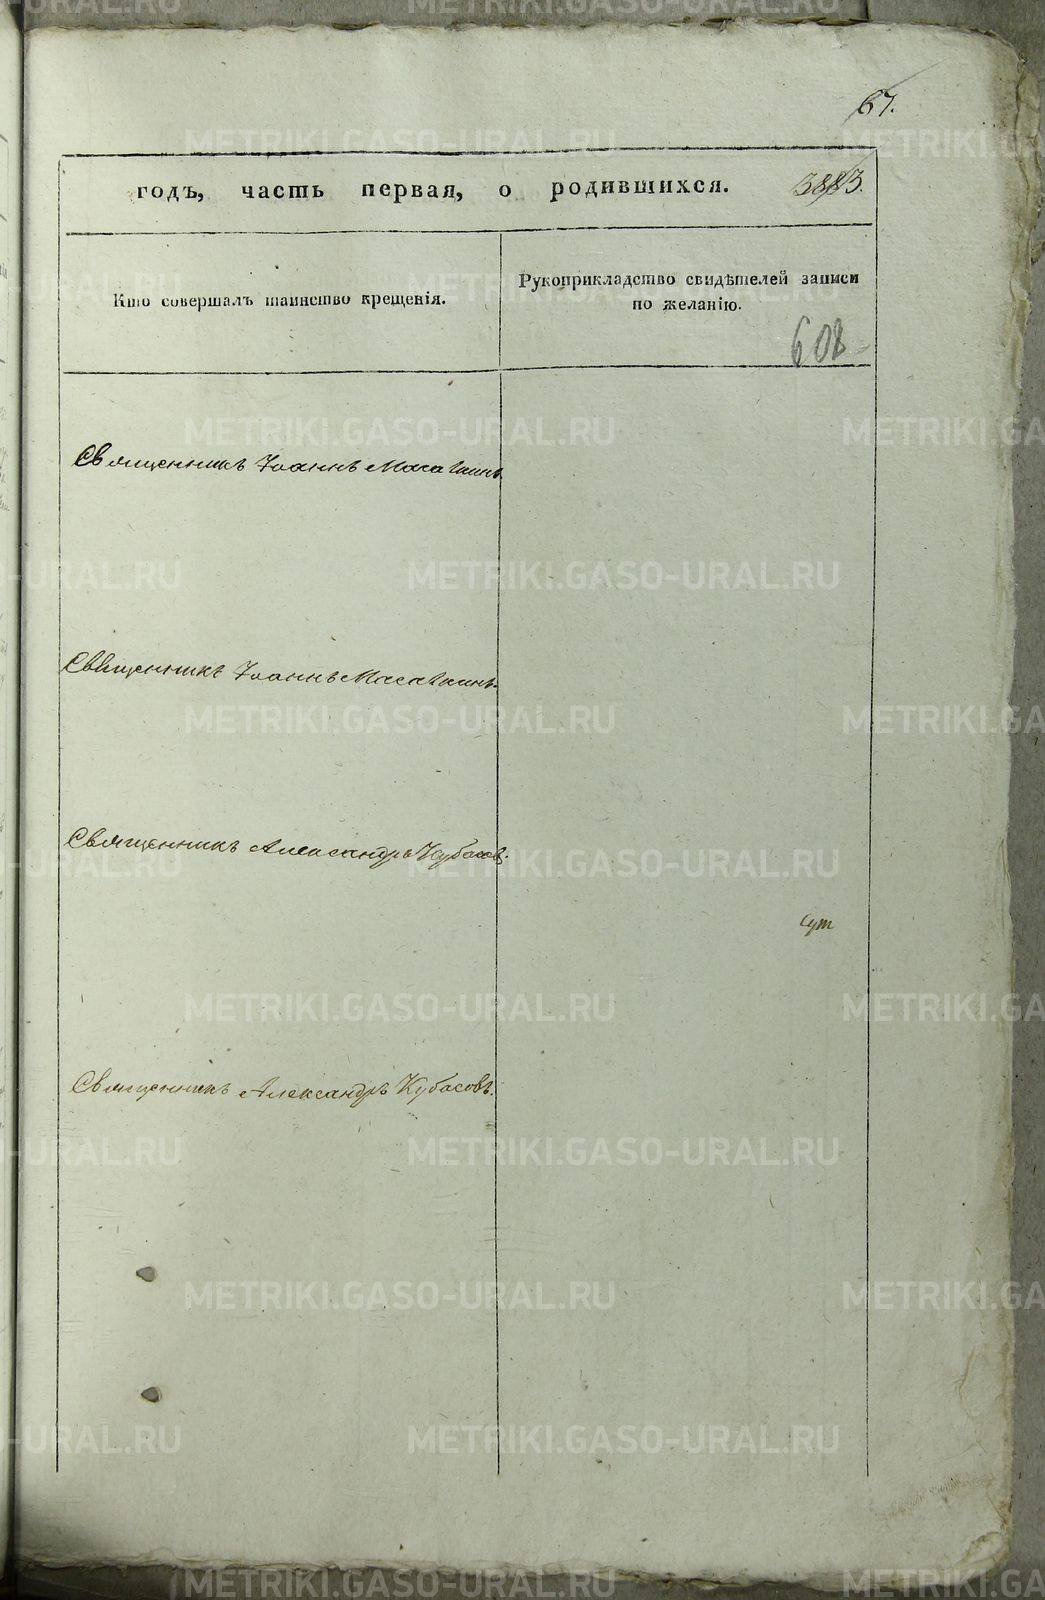 67.
годъ, часть первая, о родившихся. 3883.
Кто совершалъ таинство крещенія.
Рукоприкладство свидѣтелей записи
по желанію.
608
Священникъ Іоаннъ
Священникъ Іоаннъ
Священникъ Александръ Кубасовъ.
Священникъ Александръ Кубасовъ.
METRIKI.GASO-URAL.RU